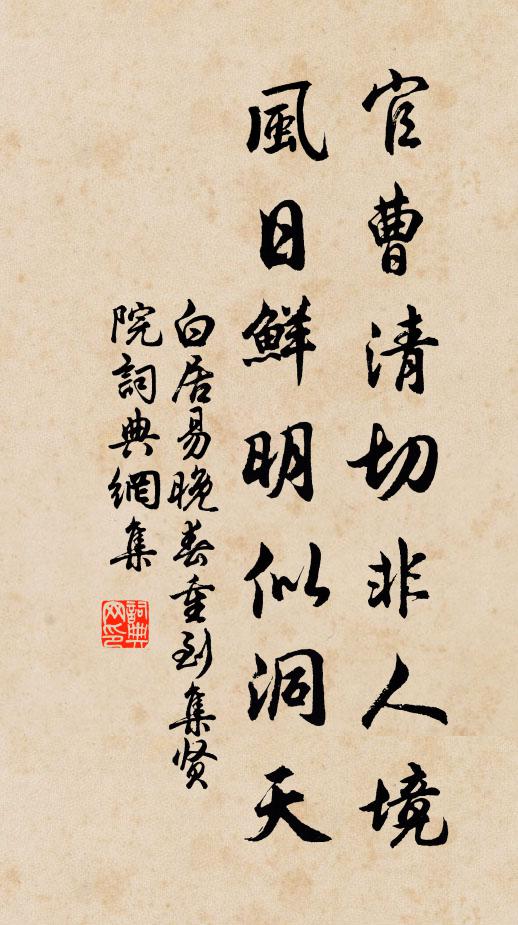 官曹清切非人境
風日鮮明似洞天
白居易晚春重到集贤
院詞典網集
詞典
网印